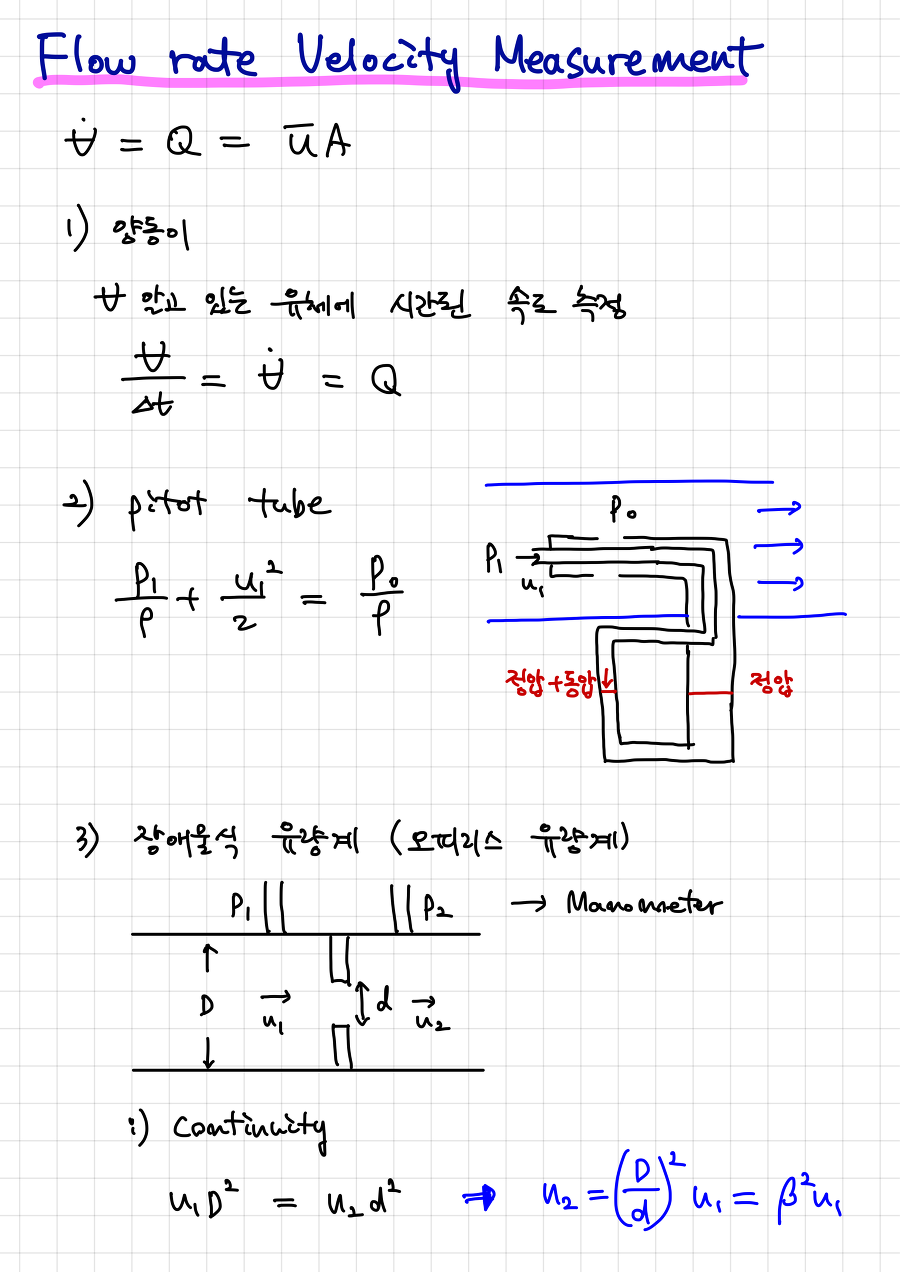 Flow rate Velocity Measurement
V̶̇ = Q = ū A
1) 양동이
V̶ 알고 있는 유체에 시간된 속도 측정
V̶/Δt = V̶̇ = Q
2) pitot tube
P₁/ρ + u₁²/2 = P₀/ρ
P₀
P₁ →
u₁
정압+동압
정압
3) 장애물식 유량계 (오피리스 유량계)
P₁ P₂ → Manometer
D u₁ d u₂
i) Continuity
u₁D² = u₂d² ⇒ u₂ = (D/d)² u₁ = β²u₁